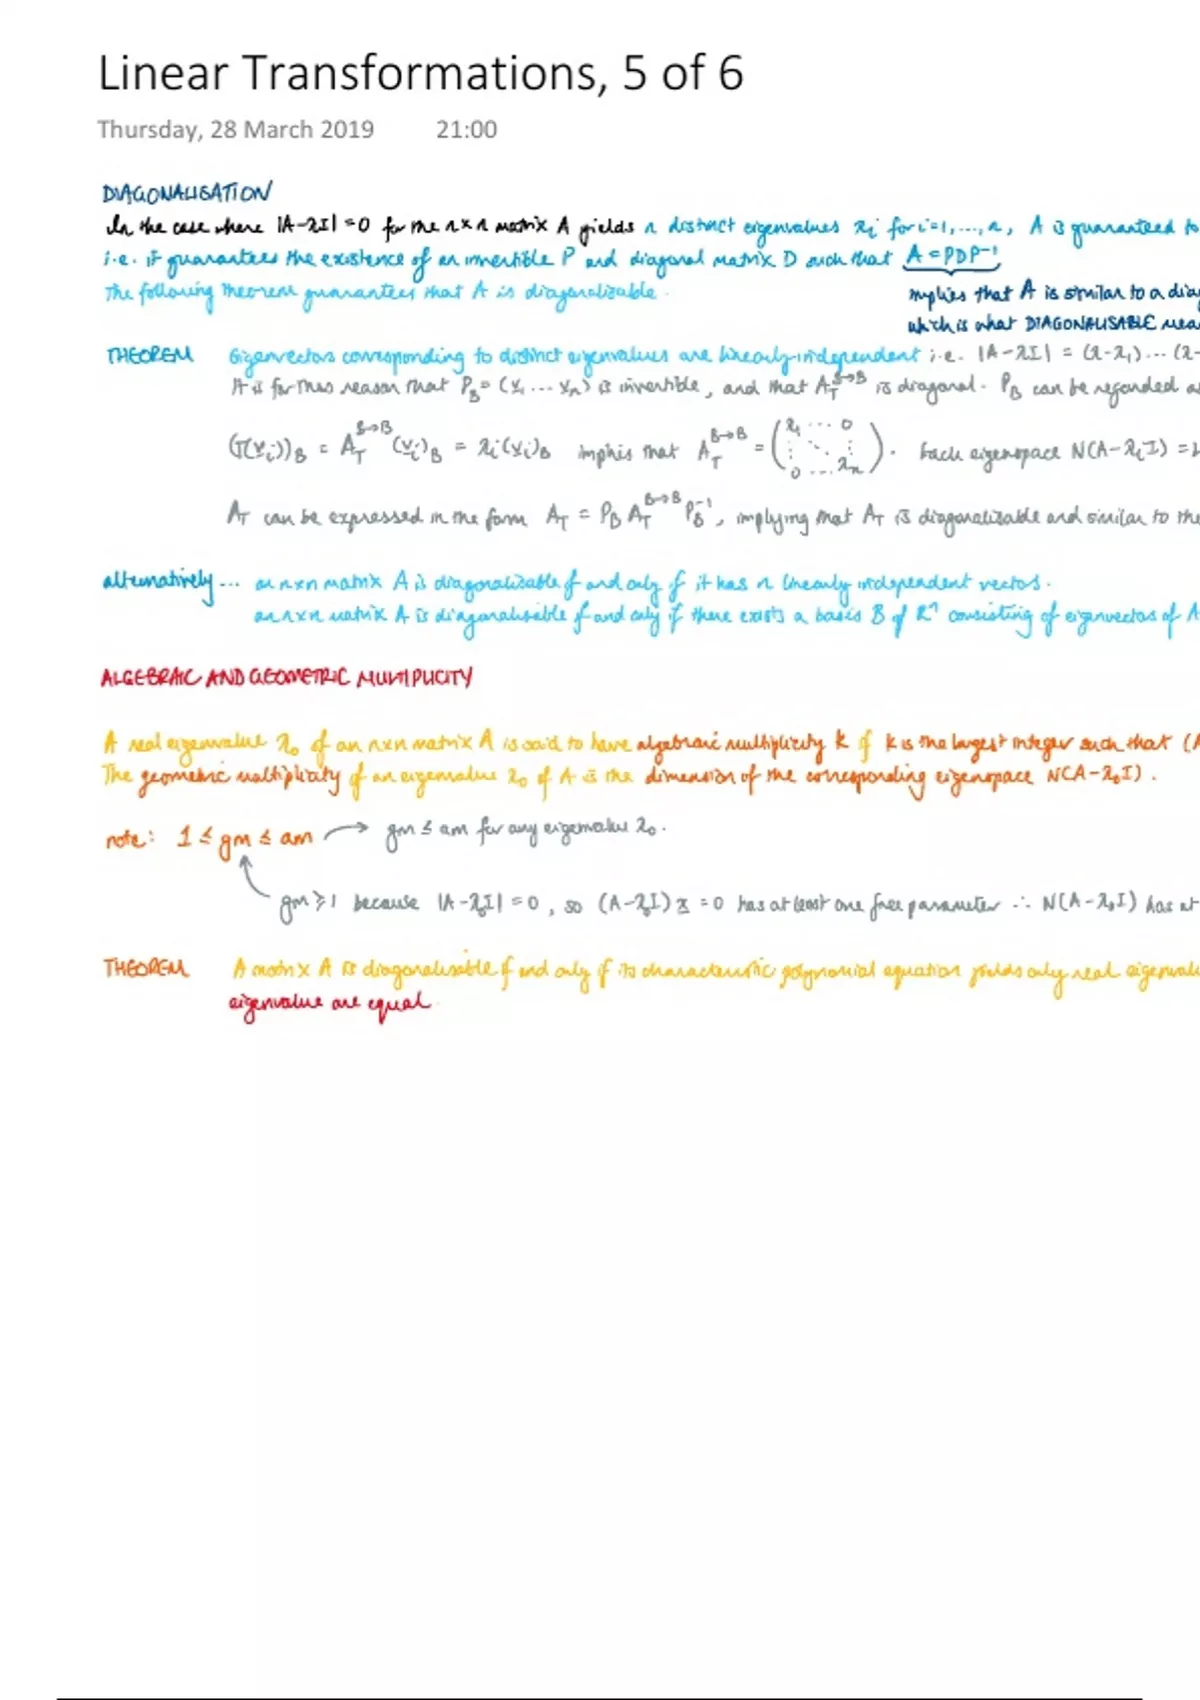 Linear Transformations, 5 of 6
Thursday, 28 March 2019 21:00
DIAGONALISATION
In the case where |A-λI| = 0 for the n×n matrix A yields n distinct eigenvalues λi for i=1,...,n, A is guaranteed to
i.e. it guarantees the existence of an invertible P and diagonal matrix D such that A = PDP⁻¹
The following theorem guarantees that A is diagonalizable.
implies that A is similar to a diag
which is what DIAGONALISABLE mea
THEOREM Eigenvectors corresponding to distinct eigenvalues are linearly independent i.e. |A-λI| = (λ-λ₁)...(λ-
It is for this reason that P_B = (v₁ ... vₙ) is invertible, and that A_T^{B→B} is diagonal. P_B can be regarded a
(T(vᵢ))_B = A_T^{B→B} (vᵢ)_B = λᵢ(vᵢ)_B implies that A_T^{B→B} = (λ₁ ... 0 ⋮ ⋱ ⋮ 0 ... λₙ). Each eigenspace N(A-λᵢI) =
A_T can be expressed in the form A_T = P_B A_T^{B→B} P_B⁻¹, implying that A_T is diagonalizable and similar to the
alternatively... an n×n matrix A is diagonalizable if and only if it has n linearly independent vectors.
an n×n matrix A is diagonalisible if and only if there exists a basis B of ℝⁿ consisting of eigenvectors of A
ALGEBRAIC AND GEOMETRIC MULTIPLICITY
A real eigenvalue λ₀ of an n×n matrix A is said to have algebraic multiplicity k if k is the largest integer such that (
The geometric multiplicity of an eigenvalue λ₀ of A is the dimension of the corresponding eigenspace N(A-λ₀I).
note: 1 ≤ gm ≤ am → gm ≤ am for any eigenvalue λ₀.
gm ≥ 1 because |A-λ₀I| = 0, so (A-λ₀I)x = 0 has at least one free parameter ∴ N(A-λ₀I) has at
THEOREM A matrix A is diagonalisable if and only if its characteristic polynomial equation yields only real eigenvalu
eigenvalue are equal.